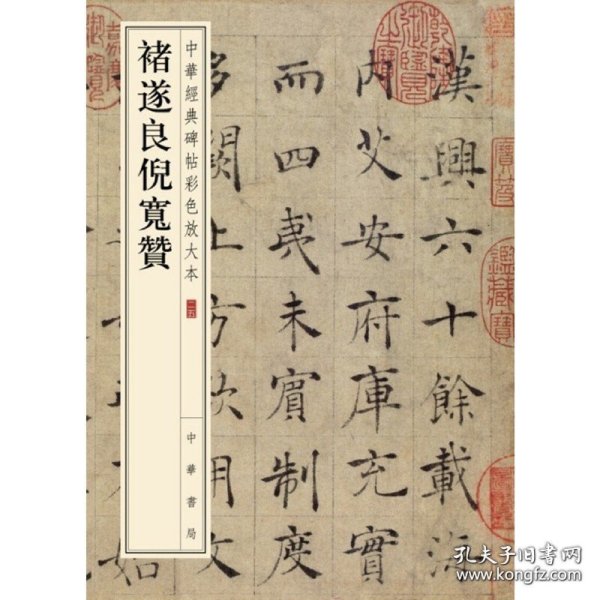 褚遂良倪寬贊
中華經典碑帖彩色放大本
二五
中華書局
漢興六十餘載海
內艾安府庫充實
而四夷未賓制度
多闕上方欲用文
如
鑑藏寶
孔夫子旧书网
www.kongfz.com